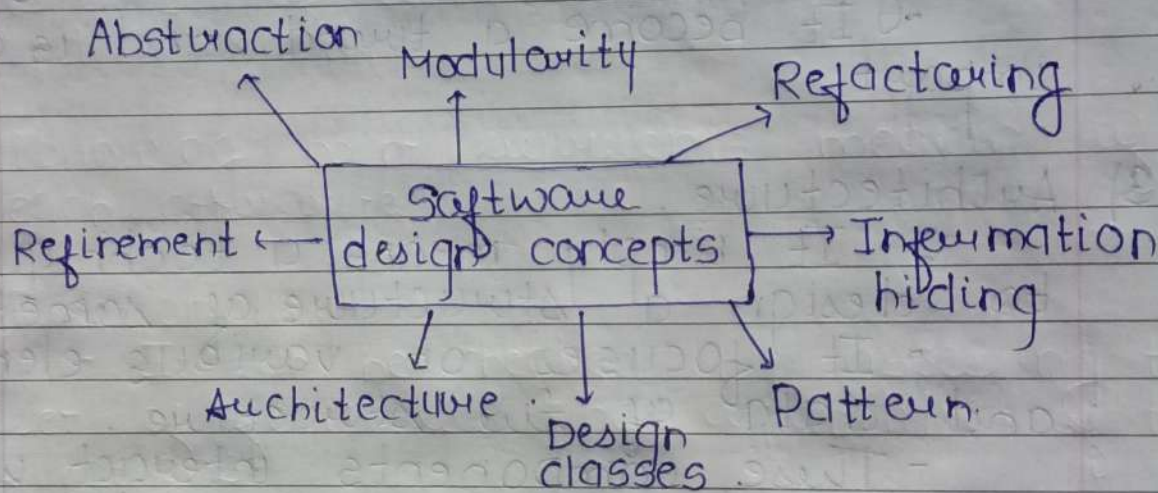 Abstraction
Modularity
Refactoring
Software
design concepts
Refinement
Information
hiding
Architecture.
Design
classes.
Pattern.